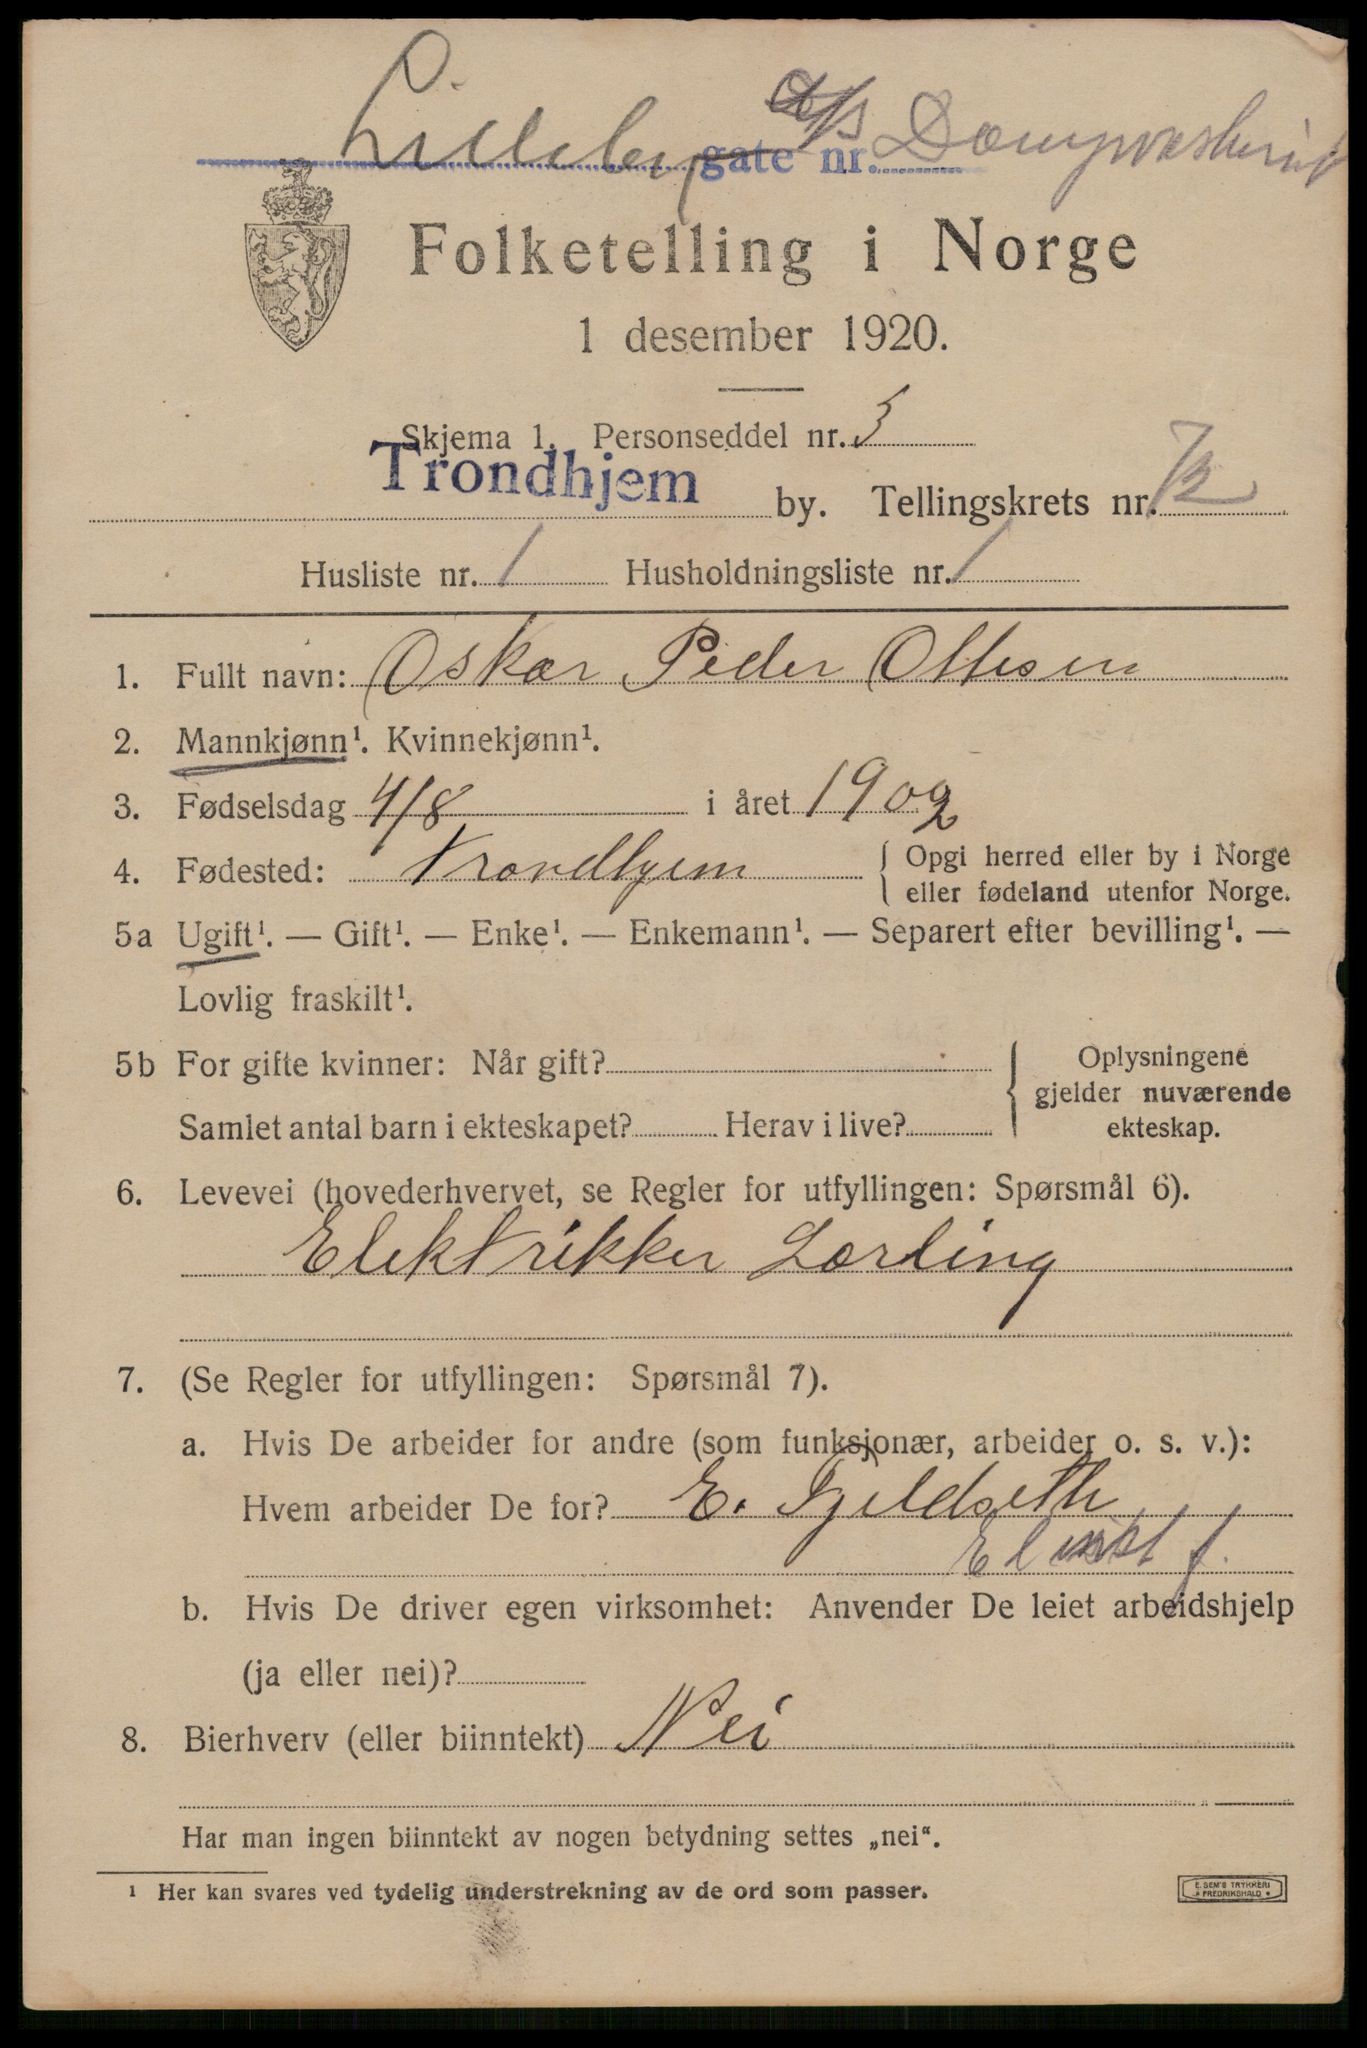 Lilleby gate nr. A/S Dampvaskeriet
Folketelling i Norge
1 desember 1920.
Skjema 1. Personseddel nr. 3
Trondhjem by. Tellingskrets nr. 72
Husliste nr. 1 Husholdningsliste nr. 1
1. Fullt navn: Oskar Peder Ottesen
2. Mannkjønn¹. Kvinnekjønn¹.
3. Fødselsdag 4/8 i året 1902
4. Fødested: Trondhjem { Opgi herred eller by i Norge
eller fødeland utenfor Norge.
5a Ugift¹. — Gift¹. — Enke¹. — Enkemann¹. — Separert efter bevilling¹. —
Lovlig fraskilt¹.
5b For gifte kvinner: Når gift?
Samlet antal barn i ekteskapet? Herav i live?
Oplysningene
gjelder nuværende
ekteskap.
6. Levevei (hovederhvervet, se Regler for utfyllingen: Spørsmål 6).
Elektrikker Lærling
7. (Se Regler for utfyllingen: Spørsmål 7).
a. Hvis De arbeider for andre (som funksjonær, arbeider o. s. v.):
Hvem arbeider De for? E. Gjeldseth
El f.
b. Hvis De driver egen virksomhet: Anvender De leiet arbeidshjelp
(ja eller nei)?
8. Bierhverv (eller biinntekt) Nei
Har man ingen biinntekt av nogen betydning settes „nei“.
¹ Her kan svares ved tydelig understrekning av de ord som passer.
E. SEM'S TRYKKERI
FREDRIKSHALD